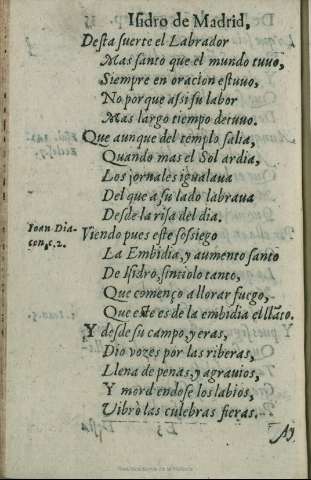 Isidro de Madrid,
Desta suerte el Labrador
Mas santo que el mundo tuuo,
Siempre en oracion estuuo,
No porque assi su labor
Mas largo tiempo detuuo.
Que aunque del templo salia,
Quando mas el Sol ardia,
Los jornales igualaua
Del que a su lado labraua
Desde la risa del dia.
Ioan Dia-
con, c. 2.
Viendo pues este sossiego
La Embidia, y aumento santo
De Isidro, sintiolo tanto,
Que començo a llorar fuego,
Que este es de la embidia el llãto.
Y desde su campo, y eras,
Dio vozes por las riberas,
Llena de penas, y agrauios,
Y mordiendose los labios,
Vibrò las culebras fieras.